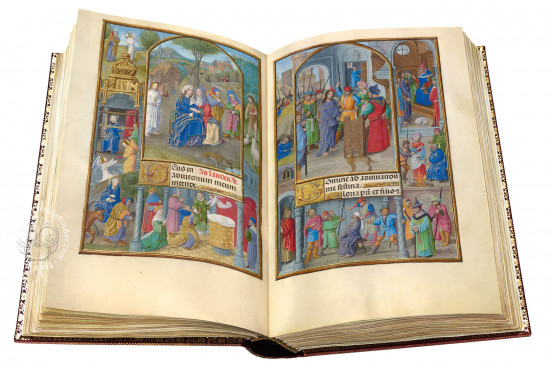 Deus in Ad laudes.
adiutorium meum
intende.
Domine ad adiuvandū
me festina.
Gloria pri et filio